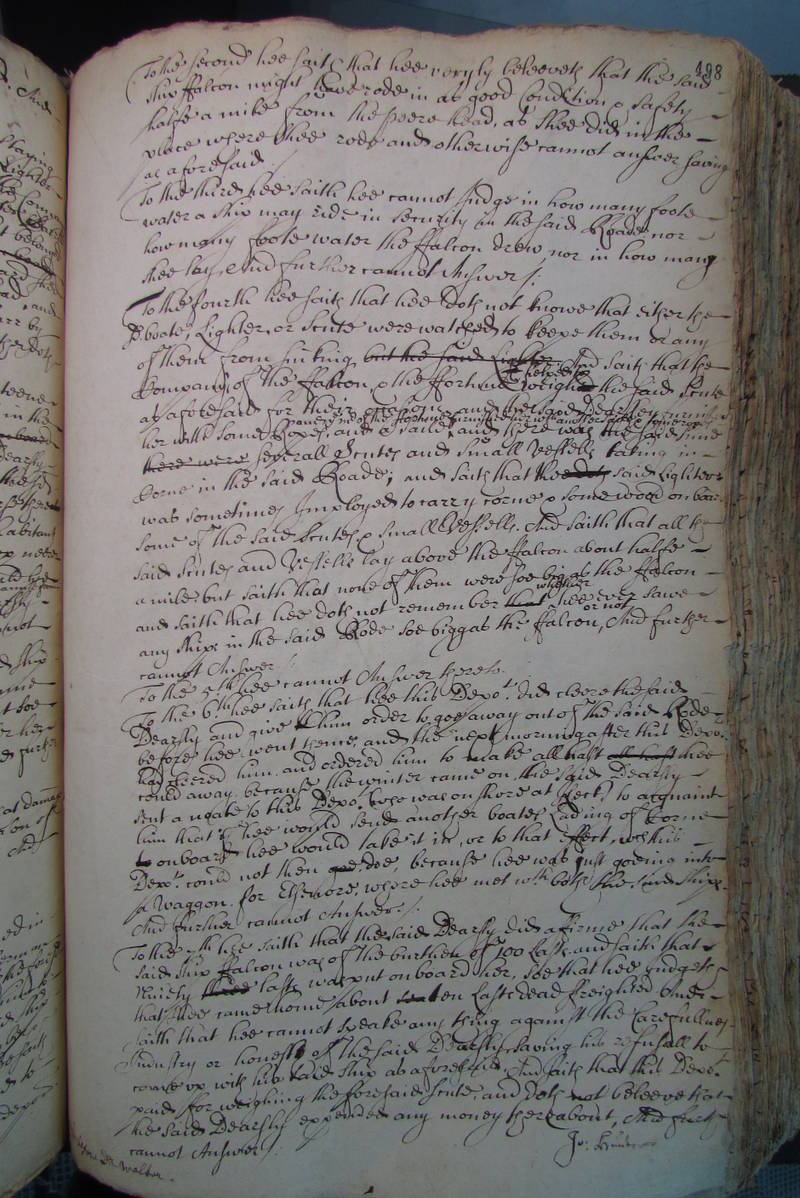 498
To the second hee saith that hee veryly beleeveth that the said
ship ffalcon might have rode in as good Condition & safety
halfe a mile from the peere head, as shee did in the
place where shee rode and otherwise cannot answer saving
as aforesaid
To the third hee saith hee cannot Judge in how many foote
water a ship may ride in security in the said Roade, nor
how many foote water the ffalcon drew, nor in how many
shee lay, And further cannot Answer
To the fourth hee saith that hee doth not knowe that either the
boate, Lighter, or Scute were watched to keepe them or any
of them from sinking, but the said Lighter And saith that the
Company of the ffalcon & the ffortune weighed the said Scute
as aforesaid for their and the said Dearsly
her with some Ropes, and a saile, and there was the same time
there were severall Scutes and small Vessells taking in
Corne in the said Roade; and saith that the said Lighter
was sometimes Imployed to carry corne & some wood on board
some of the said Scutes & small Vessells. And saith that all the
said Scutes and Vessells lay above the ffalcon about halfe
a mile but saith that none of them were soe big as the ffalcon
and saith that hee doth not remember that whether hee ever sawe
any ships in the said Rode soe bigg as the ffalcon, or not And further
cannot Answer
To the 5th hee cannot Answer thereto.
To the 6th hee saith that hee this Depot. did cleere the said
Dearsly and give him order to goe away out of the said Rode
before hee went thence, and the next morning after this Depot.
had cleered him, and ordered him to make all hast all hast hee
could away, because the winter came on, the said Dearsly
sent a noate to this Depot. (who was on shore at ) to acquaint
him that if hee would send another boates Lading of Corne
on board hee would take it in, or to that effect, which this
Depot. could not then doe, because hee was just goeing into
a Waggon for Elsenore, where hee met with both the said ships
And further cannot Answer
To the 7th hee saith that the said Dearsly did affirme that the
said ship ffalcon was of the burthen of 100 Lasts and saith that
Ninety lasts was put on board her, soe that hee Judgeth
that shee came home about ten Lasts dead freighted And
saith that hee cannot speake any thing against the Carefullnes
Industry or honesty of the said Dearsly saving his refusall to
come up with his said ship as aforesaid, And saith that this Depot.
paid for weighing the foresaid Scute, and doth not beleeve that
the said Dearsly expended any money thereabout, And further
cannot Answer
Walker.